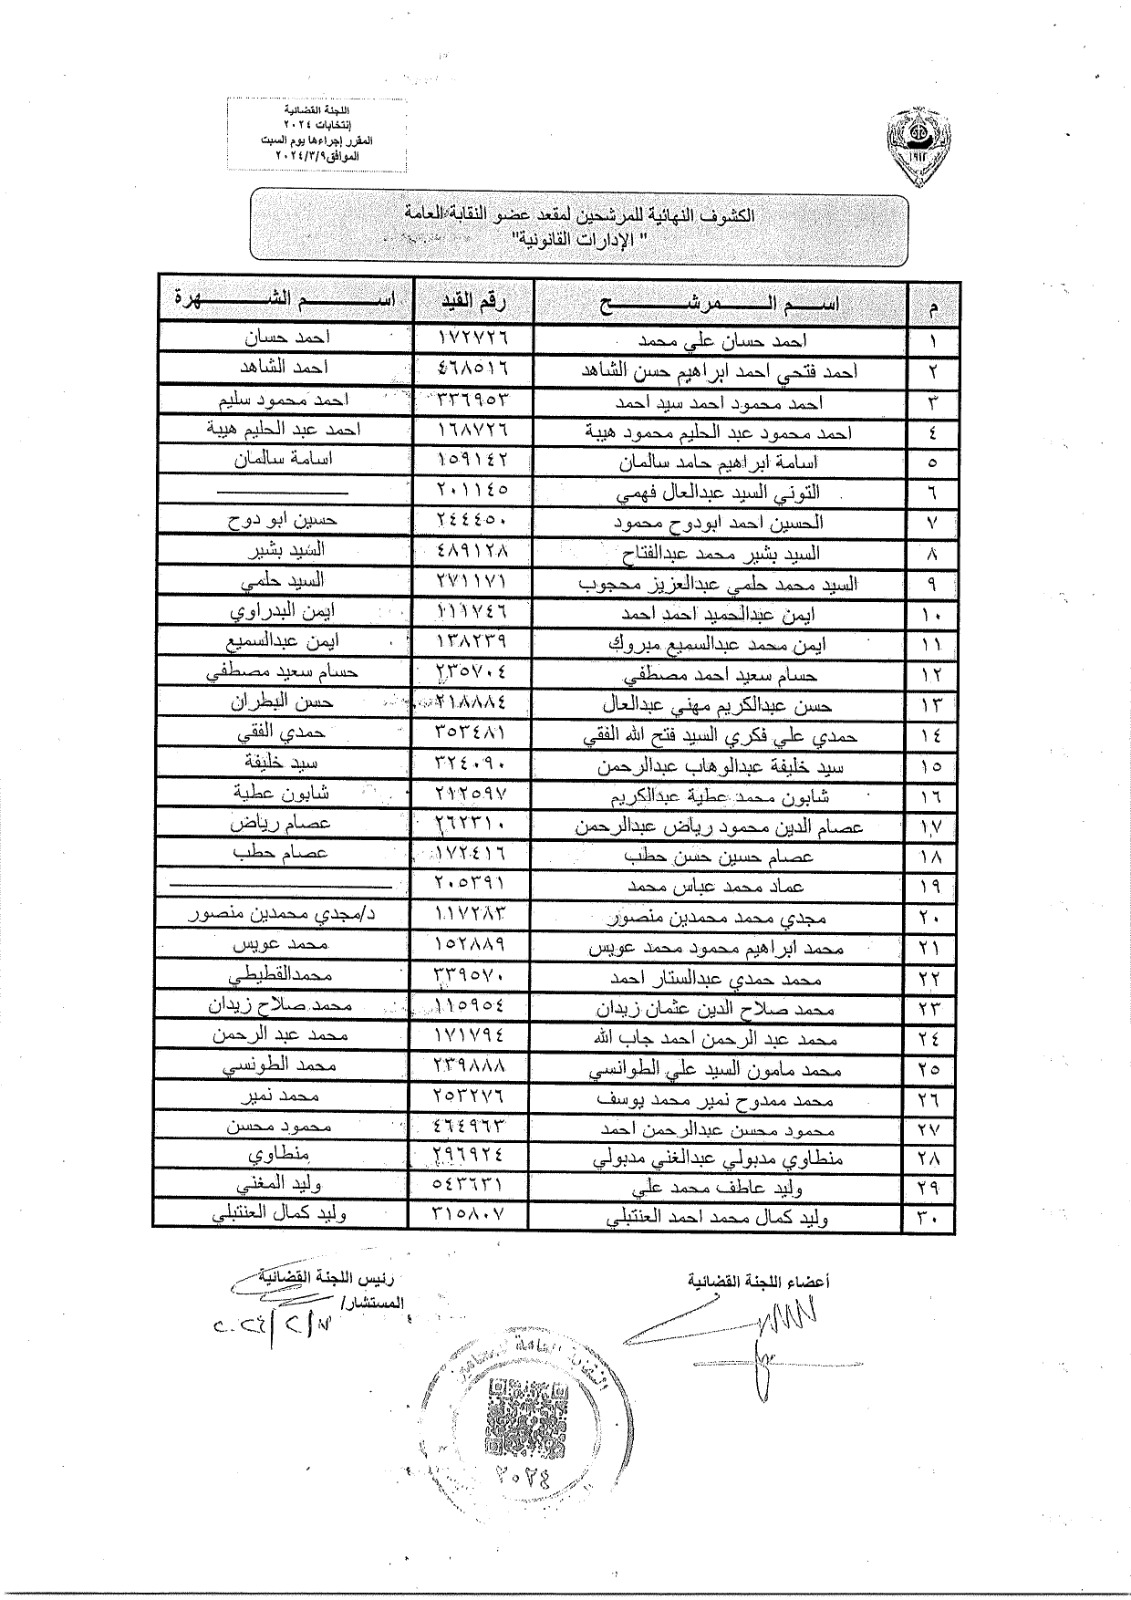 اللجنة القضائية
إنتخابات ٢٠٢٤
المقرر إجراءها يوم السبت
الموافق٢٠٢٤/٣/٩
١٩١٢
الكشوف النهائية للمرشحين لمقعد عضو النقابة العامة
" الإدارات القانونية"
م اسم المرشح رقم القيد اسم الشهرة
١ احمد حسان علي محمد ١٧٢٧٢٦ احمد حسان
٢ احمد فتحي احمد ابراهيم حسن الشاهد ٤٦٨٥١٦ احمد الشاهد
٣ احمد محمود احمد سيد احمد ٣٣٦٩٥٣ احمد محمود سليم
٤ احمد محمود عبد الحليم محمود هيبة ١٦٨٧٢٦ احمد عبد الحليم هيبة
٥ اسامة ابراهيم حامد سالمان ١٥٩١٤٢ اسامة سالمان
٦ التوني السيد عبدالعال فهمي ٢٠١١٤٥
٧ الحسين احمد ابودوح محمود ٢٤٤٤٥٠ حسين ابو دوح
٨ السيد بشير محمد عبدالفتاح ٤٨٩١٢٨ السيد بشير
٩ السيد محمد حلمي عبدالعزيز محجوب ٢٧١١٧١ السيد حلمي
١٠ ايمن عبدالحميد احمد احمد ١١١٧٤٦ ايمن البدراوي
١١ ايمن محمد عبدالسميع مبروك ١٣٨٢٣٩ ايمن عبدالسميع
١٢ حسام سعيد احمد مصطفي ٢٣٥٧٠٤ حسام سعيد مصطفي
١٣ حسن عبدالكريم مهني عبدالعال ٢١٨٨٨٤ حسن البطران
١٤ حمدي علي فكري السيد فتح الله الفقي ٣٥٣٤٨١ حمدي الفقي
١٥ سيد خليفة عبدالوهاب عبدالرحمن ٣٢٤٠٩٠ سيد خليفة
١٦ شابون محمد عطية عبدالكريم ٢١٢٥٩٧ شابون عطية
١٧ عصام الدين محمود رياض عبدالرحمن ٢٦٢٣١٠ عصام رياض
١٨ عصام حسين حسن حطب ١٧٢٤١٦ عصام حطب
١٩ عماد محمد عباس محمد ٢٠٥٣٩١
٢٠ مجدي محمد محمدين منصور ١١٧٢٨٣ د/مجدي محمدين منصور
٢١ محمد ابراهيم محمود محمد عويس ١٥٢٨٨٩ محمد عويس
٢٢ محمد حمدي عبدالستار احمد ٣٣٩٥٧٠ محمدالقطيطي
٢٣ محمد صلاح الدين عثمان زيدان ١١٥٩٥٤ محمد صلاح زيدان
٢٤ محمد عبد الرحمن احمد جاب الله ١٧١٧٩٤ محمد عبد الرحمن
٢٥ محمد مامون السيد علي الطوانسي ٢٣٩٨٨٨ محمد الطونسي
٢٦ محمد ممدوح نمير محمد يوسف ٢٥٣٢٧٦ محمد نمير
٢٧ محمود محسن عبدالرحمن احمد ٤٦٤٩٦٣ محمود محسن
٢٨ منطاوي مدبولي عبدالغني مدبولي ٢٩٦٩٢٤ منطاوي
٢٩ وليد عاطف محمد علي ٥٤٣٦٣١ وليد المغني
٣٠ وليد كمال محمد احمد العنتبلي ٣١٥٨٠٧ وليد كمال العنتبلي
أعضاء اللجنة القضائية
رئيس اللجنة القضائية
المستشار/
النقابة العامة للمحامين
٢٠٢٤